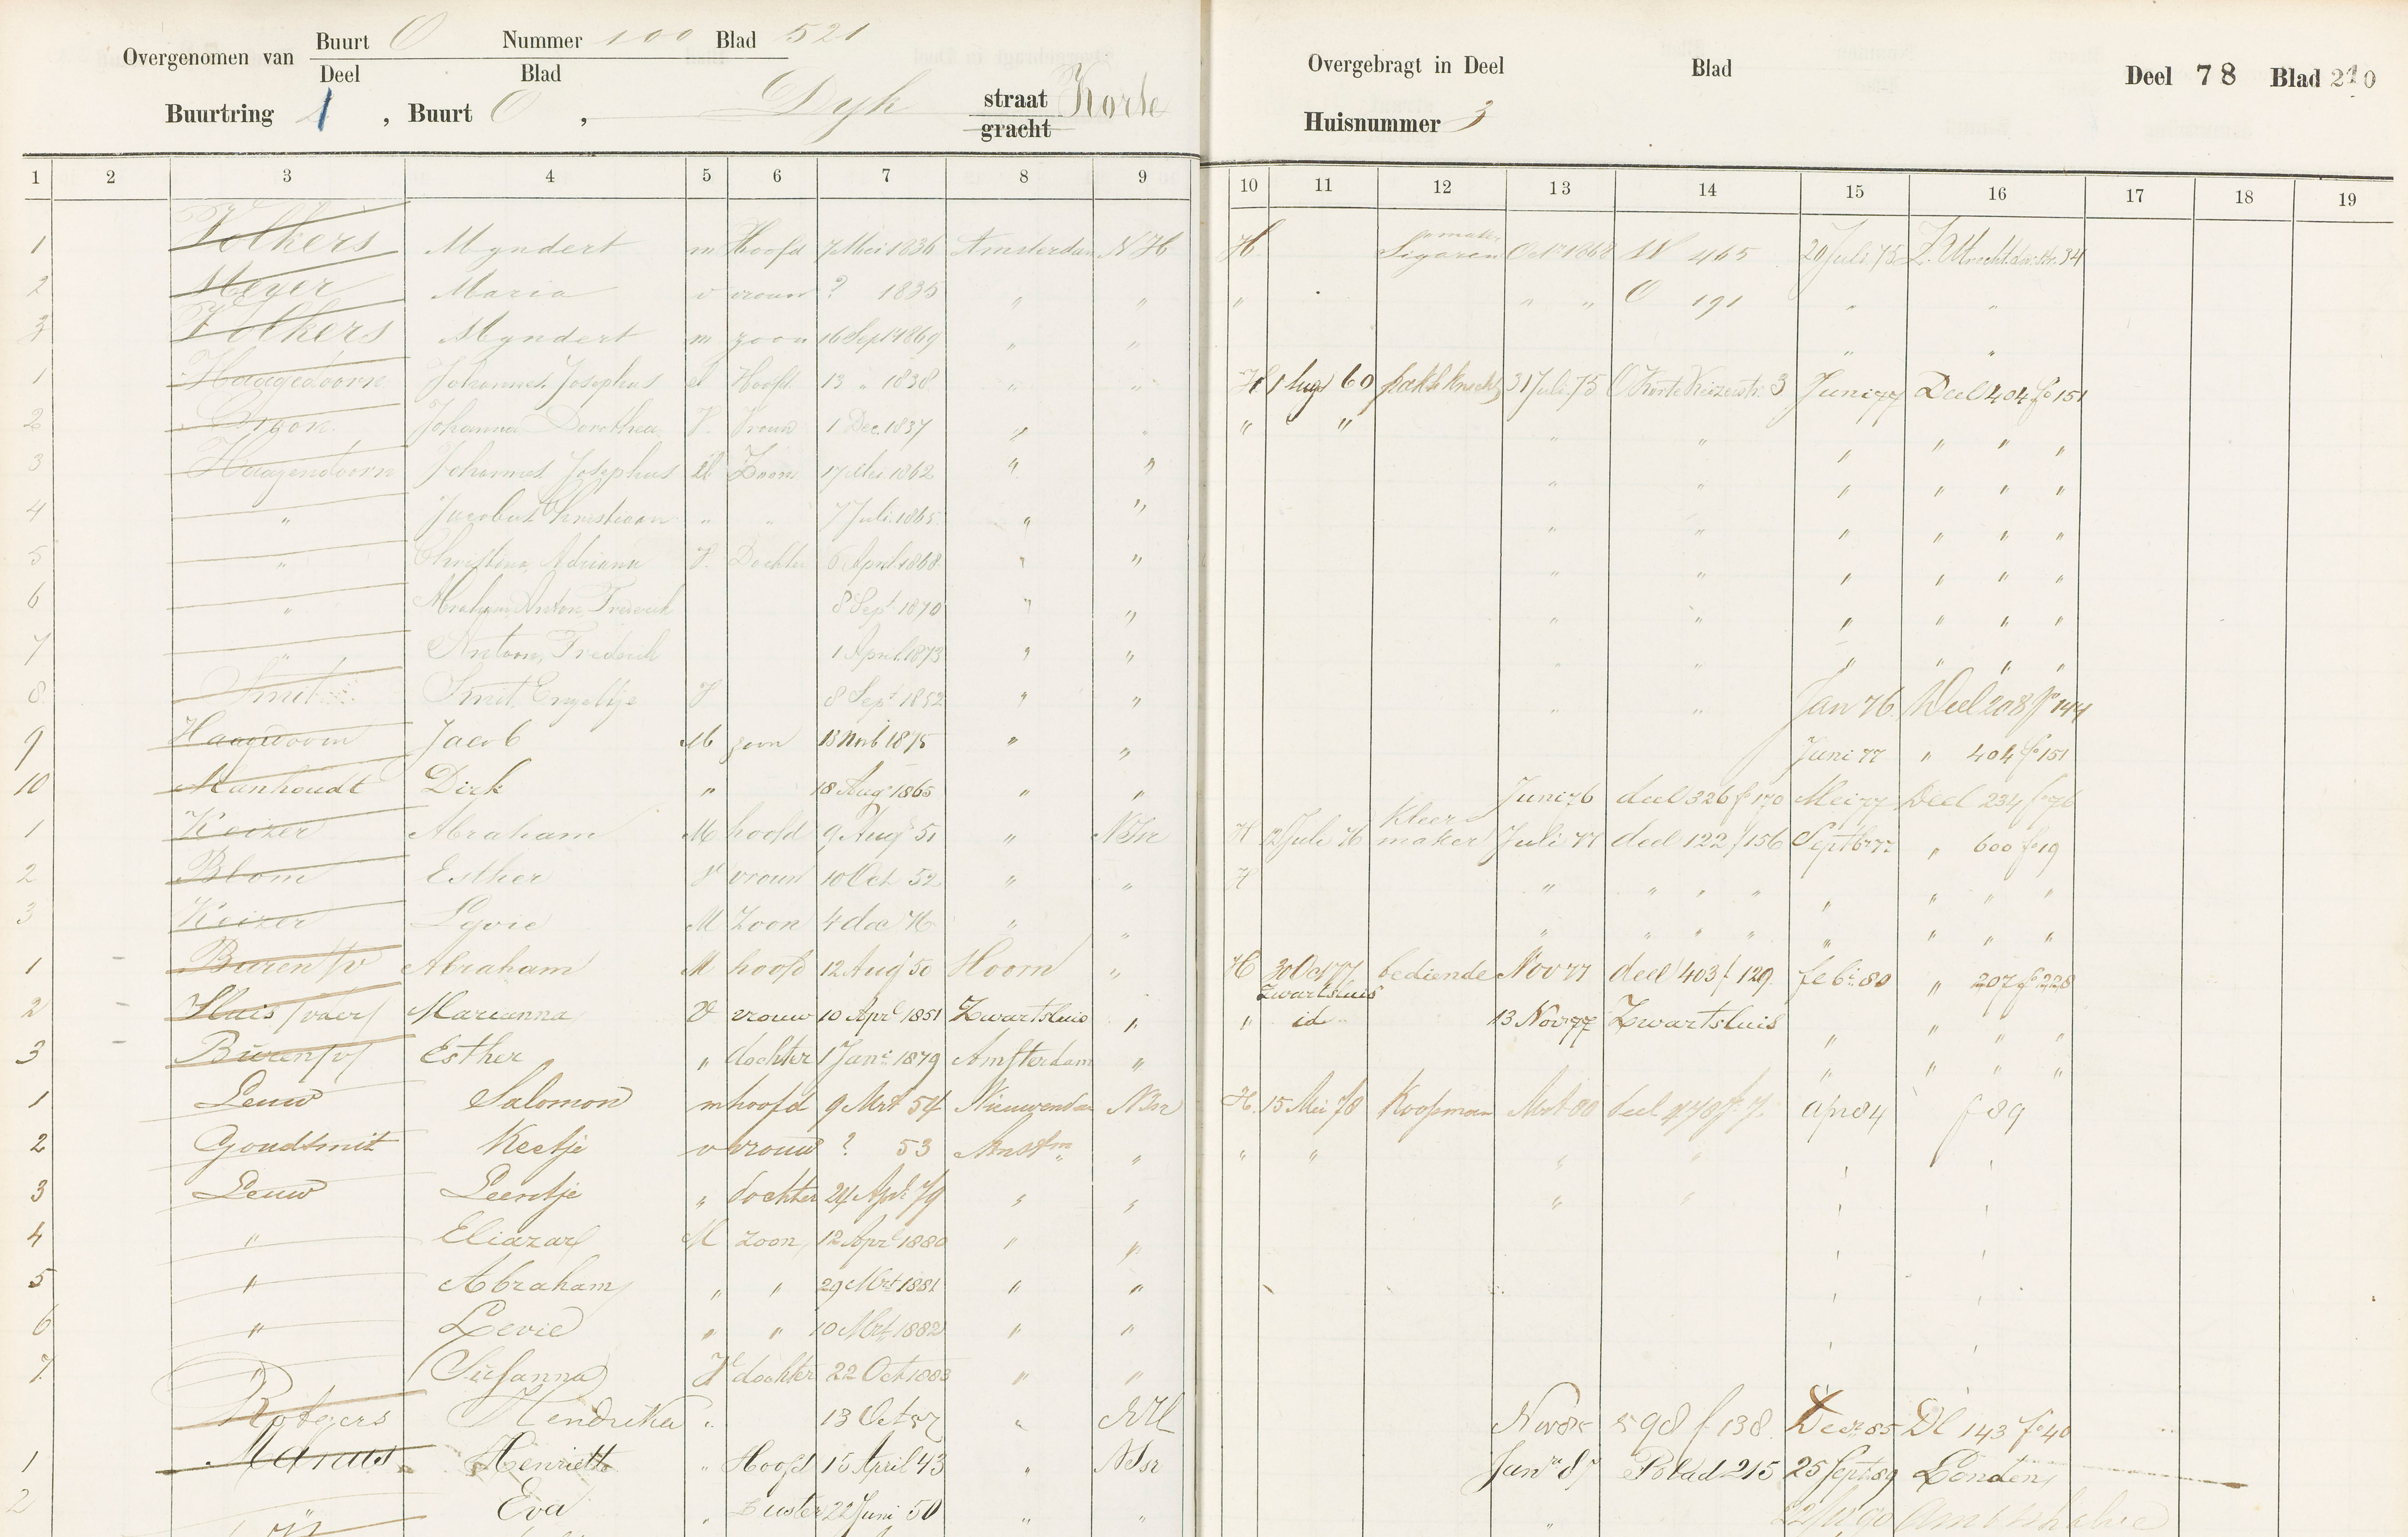 Overgenomen van Buurt O Nummer 100 Blad 521
Deel Blad
Buurtring 1, Buurt O, Dyk straat Korte
gracht
Overgebragt in Deel Blad Deel 78 Blad 210
Huisnummer 3
1 2 3 4 5 6 7 8 9 10 11 12 13 14 15 16 17 18 19
1 Volkers Myndert m Hoofd 7 Mei 1836 Amsterdam NH H Sigaren Oct 1868 465 20 Juli 75 34
2 Meyer Maria v vrouw ? 1835 " " " " " O 191 " "
3 Volkers Myndert m zoon 16 Sept 1869 " " " "
1 Haagedoorn Johannes Josephus M Hoofd 13 " 1838 " " H 1 Aug 60 pakh knecht 31 Juli 75 O Korte Keizerstr. 3 Juni 77 Deel 404 fo 151
2 Johanna Dorothea V. Vrouw 1 Dec. 1837 " " " " " " " " " "
3 Haagendoorn Johannes Josephus M Zoon 17 Mei 1862 " " " " " " " "
4 " Jacobus Christiaan " " 7 Juli 1865 " " " " " " " "
5 " Christina Adriana V. Dochter 6 April 1868 " " " " " " " "
6 " Abraham Anton Frederik 8 Sept 1870 " " " " " " " "
7 " Antoon, Frederik 1 April 1873 " " " " " " " "
8 Smit Smit, Engeltje V 8 Sept 1852 " " " " Jan 76 Deel 208 fo 144
9 Haagedoorn Jacob M zoon 13 Novb 1875 " " Juni 77 " 404 fo 151
10 Manhoudt Dirk " 18 Aug 1865 " " Juni 76 deel 326 f 170 Mei 77 Deel 234 fo 76
1 Keizer Abraham M hoofd 9 Aug 51 " NIsr H 12 Juli 76 Kleermaker Juli 77 deel 122 f 156 Septbr 77 " 600 fo 19
2 Blom Esther V vrouw 10 Oct 52 " " H " " " " " " " "
3 Keizer Levie M Zoon 4 dec 76 " " " " " " " " " "
1 Buren /v Abraham M hoofd 12 Aug 50 Hoorn " H 30 Oct 77 Zwartsluis bediende Nov 77 deel 403 f 129 feb. 80 " 207 fo 228
2 Sluis /van der/ Marianna V vrouw 10 Apr 1851 Zwartsluis " " id 13 Nov 77 Zwartsluis " " " "
3 Buren /v/ Esther " dochter 1 Jan 1879 Amsterdam " " " " "
1 Leuw Salomon m hoofd 9 Mrt 54 Nieuwendam NIsr H. 15 Mei 78 Koopman Mrt 80 deel 478 f. 7. apr 84 f 89
2 Goudsmit Keetje v vrouw ? 53 Amstm " " " " " " "
3 Leuw Leentje " dochter 24 Apr 79 " " " " " "
4 " Eliazar M zoon 12 Apr 1880 " " " "
5 " Abraham " " 29 Mrt 1881 " " " "
6 " Levie " " 10 Mrt 1882 " " " "
7 " Susanna V dochter 22 Oct 1883 " "
Rotgers Hendrika " 13 Oct 57 " NH Nov 85 598 f 138 Decr 85 Dl 143 fo 40
1 Henriette " Hoofd 15 April 43 " NIsr Jan 87 P blad 215 25 Sept 89 Londen
2 " Eva " Zuster 22 Juni 50 " " " 90 Ambtshalve